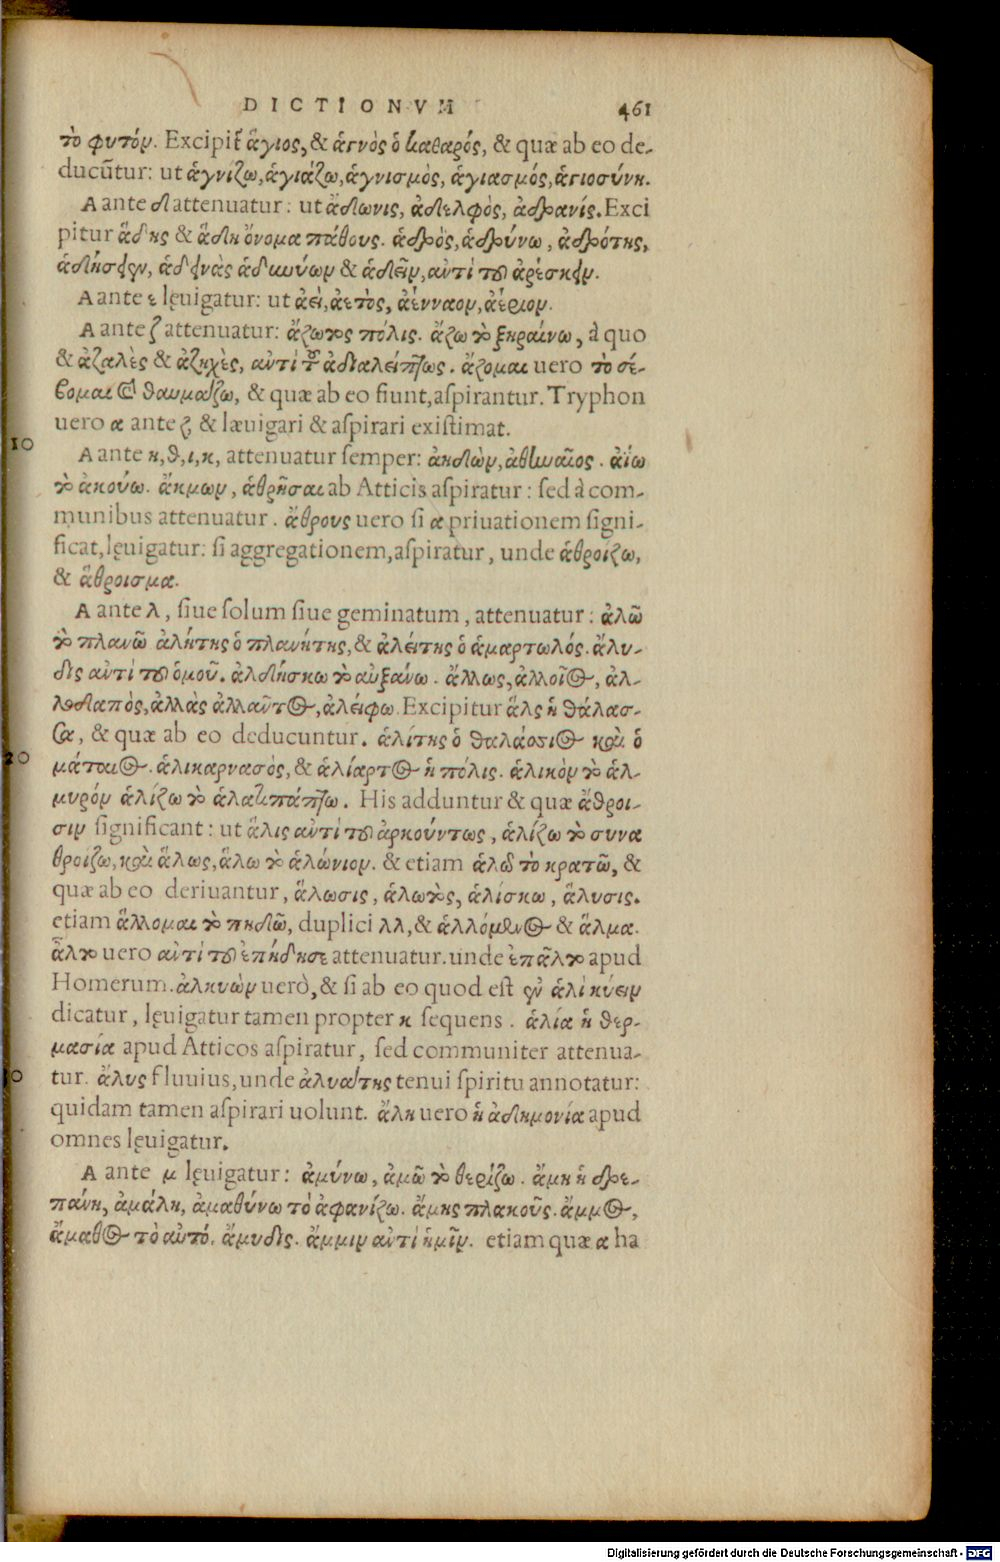 DICTIONVM 461
τὸ φυτόν. Excipit̃ ἅγιος, & ἁγνὸς ὁ καθαρός, & quæ ab eo de-
ducũtur: ut ἁγνίζω, ἁγιάζω, ἁγνισμὸς, ἁγιασμός, ἁγιοσύνη.
A ante δ attenuatur: ut ἄδωνις, ἀδελφὸς, ἀδρανίς. Exci
pitur ἅδης & ἅδη ὄνομα πάθους. ἁδρὸς, ἁδρύνω, ἁδρότης,
& ἁδεῖν, ἀντὶ τοῦ ἀρέσκειν.
A ante ε lęuigatur: ut ἀεί, ἀετὸς, ἀένναον, ἀέριον.
A ante ζ attenuatur: ἄζωτος πόλις. ἄζω τὸ ξηραίνω, à quo
& ἀζαλὲς & ἀζηχὲς, ἀντὶ τοῦ ἀδιαλείπτως. ἅζομαι uero τὸ σέ-
βομαι & θαυμάζω, & quæ ab eo fiunt, aſpirantur. Tryphon
10 uero α ante ζ, & læuigari & aſpirari exiſtimat.
A ante η, θ, ι, κ, attenuatur ſemper: ἀηδὼν, ἀθηναῖος. ἀΐω
τὸ ἀκούω. ἄκμων, ἁθρῆσαι ab Atticis aſpiratur: ſed à com-
munibus attenuatur. ἄθρους uero ſi α priuationem ſigni-
ficat, lęuigatur: ſi aggregationem, aſpiratur, unde ἁθροίζω,
& ἅθροισμα.
A ante λ, ſiue ſolum ſiue geminatum, attenuatur: ἀλῶ
τὸ πλανῶ ἀλήτης ὁ πλανήτης, & ἀλείτης ὁ ἁμαρτωλός. ἄλυ-
δις ἀντὶ τοῦ ὁμοῦ. ἀλδήσκω τὸ αὐξάνω. ἄλλως, ἀλλοῖος, ἀλ-
λοδαπὸς, ἀλλὰς ἀλλᾶντος, ἀλείφω. Excipitur ἅλς ἡ θάλασ-
σα, & quæ ab eo deducuntur. ἁλίτης ὁ θαλάσσιος καὶ ὁ
20 μάταιος. ἁλικαρνασὸς, & ἁλίαρτος ἡ πόλις. ἁλικὸν τὸ ἁλ-
μυρόν ἁλίζω τὸ. His adduntur & quæ ἄθροι-
σιν ſignificant: ut ἅλις ἀντὶ τοῦ ἀρκούντως, ἁλίζω τὸ συνα
θροίζω, καὶ ἅλως, ἅλω τὸ ἁλώνιον. & etiam ἁλῶ τὸ κρατῶ, &
quæ ab eo deriuantur, ἅλωσις, ἁλωτὸς, ἁλίσκω, ἅλυσις.
etiam ἅλλομαι τὸ πηδῶ, duplici λλ, & ἁλλόμενος & ἅλμα.
ἆλτο uero ἀντὶ τοῦ ἐπήδησε attenuatur. unde ἐπᾶλτο apud
Homerum. ἀλκυὼν uerò, & ſi ab eo quod eſt ἐν ἁλὶ κύειν
dicatur, lęuigatur tamen propter κ ſequens. ἁλία ἡ θερ-
μασία apud Atticos aſpiratur, ſed communiter attenua-
30 tur. ἄλυς fluuius, unde ἀλυάτης tenui ſpiritu annotatur:
quidam tamen aſpirari uolunt. ἄλη uero ἡ ἀδημονία apud
omnes lęuigatur.
A ante μ lęuigatur: ἀμύνω, ἀμῶ τὸ θερίζω. ἄμη ἡ δρε-
πάνη, ἀμάλη, ἀμαθύνω τὸ ἀφανίζω. ἄμης πλακοῦς. ἄμμος,
ἄμαθος τὸ αὐτό. ἄμυδις. ἄμμιν ἀντὶ ἡμῖν. etiam quæ α ha
Digitalisierung gefördert durch die Deutsche Forschungsgemeinschaft - DFG